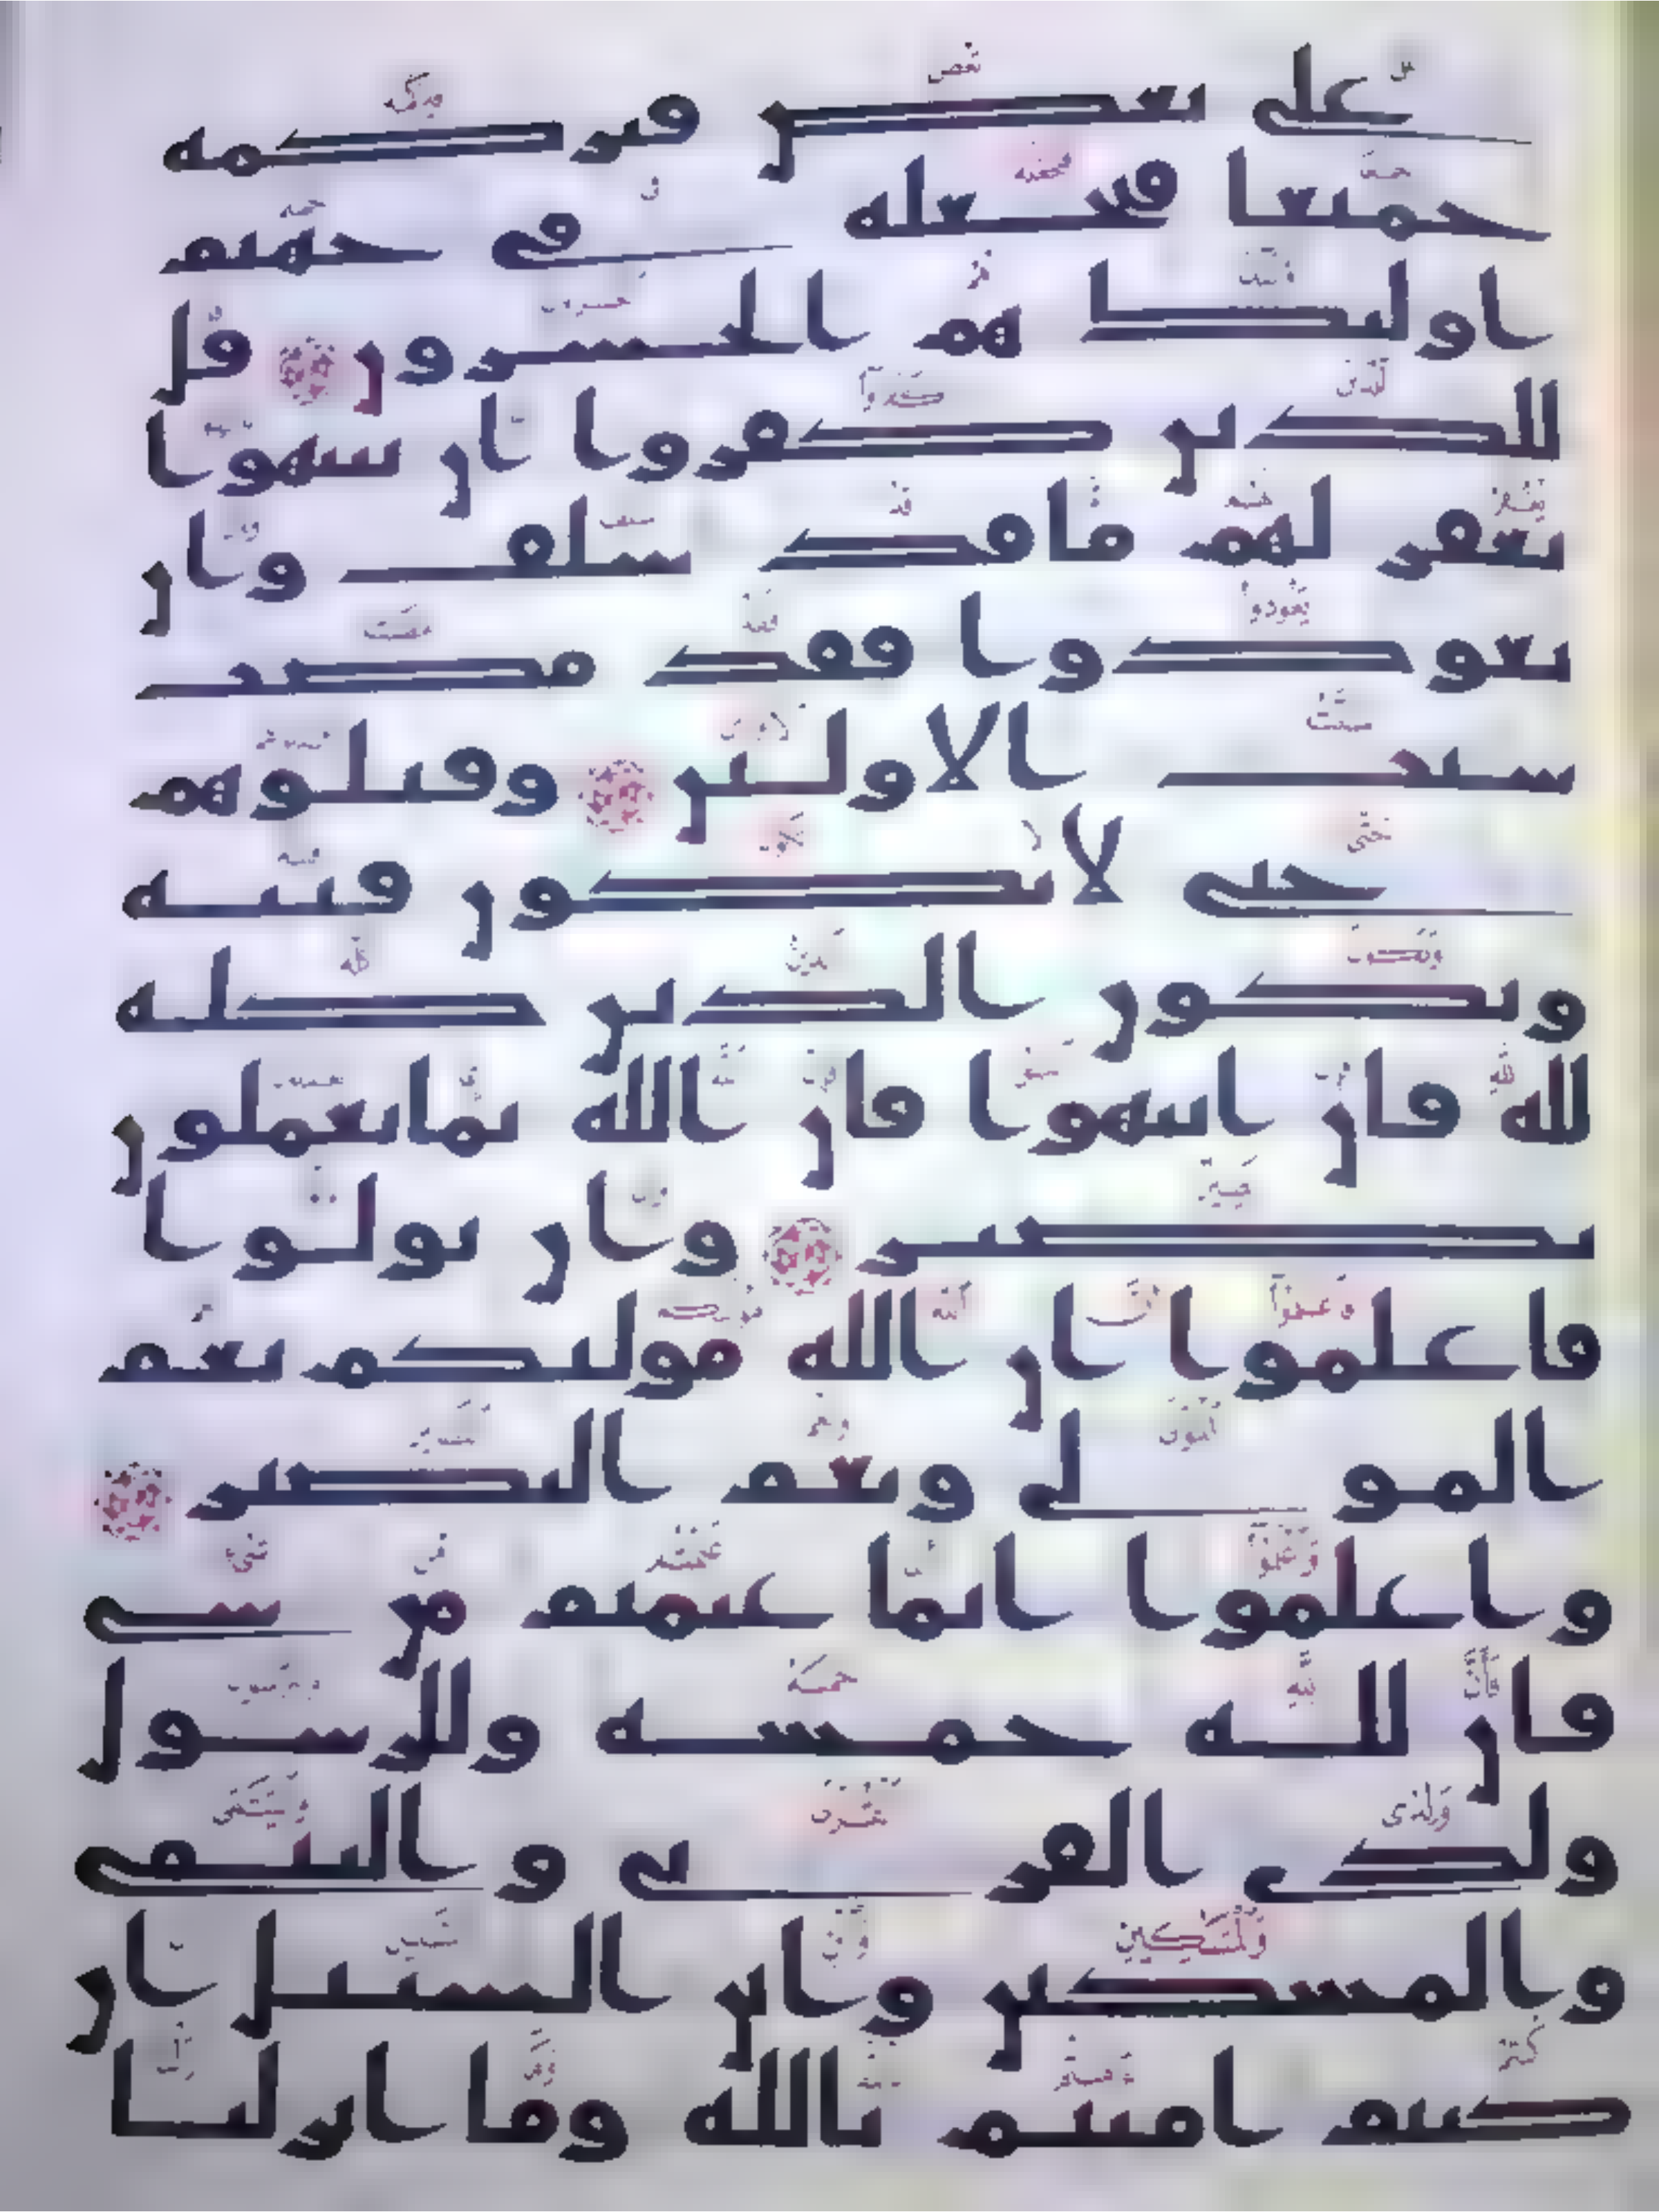 على بعض فيركمه
جميعا فيجعله في جهنم
اولئك هم الخسرون قل
للذين كفروا ان ينتهوا
يغفر لهم ما قد سلف وان
يعودوا فقد مضت
سنت الاولين وقتلوهم
حتى لا تكون فتنة
ويكون الدين كله
لله فان انتهوا فان الله بما يعملون
بصير وان تولوا
فاعلموا ان الله موليكم نعم
المولى ونعم النصير
واعلموا انما غنمتم من شي
فان لله خمسه وللرسول
ولذى القربى واليتمى
والمسكين وابن السبيل ان
كنتم امنتم بالله وما انزلنا